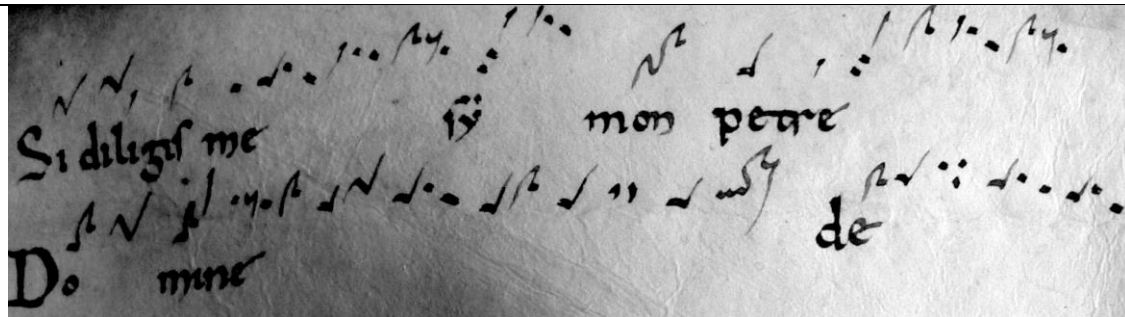 Si diligis me sy mon petre
Do mine de